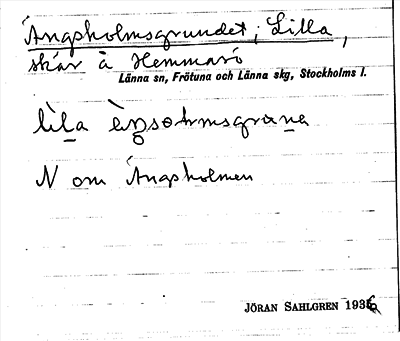 Ängsholmsgrundet, Lilla,
skär å Hemmarö
Länna sn, Frötuna och Länna skg, Stockholms l.
N om Ängsholmen
JÖRAN SAHLGREN 1936